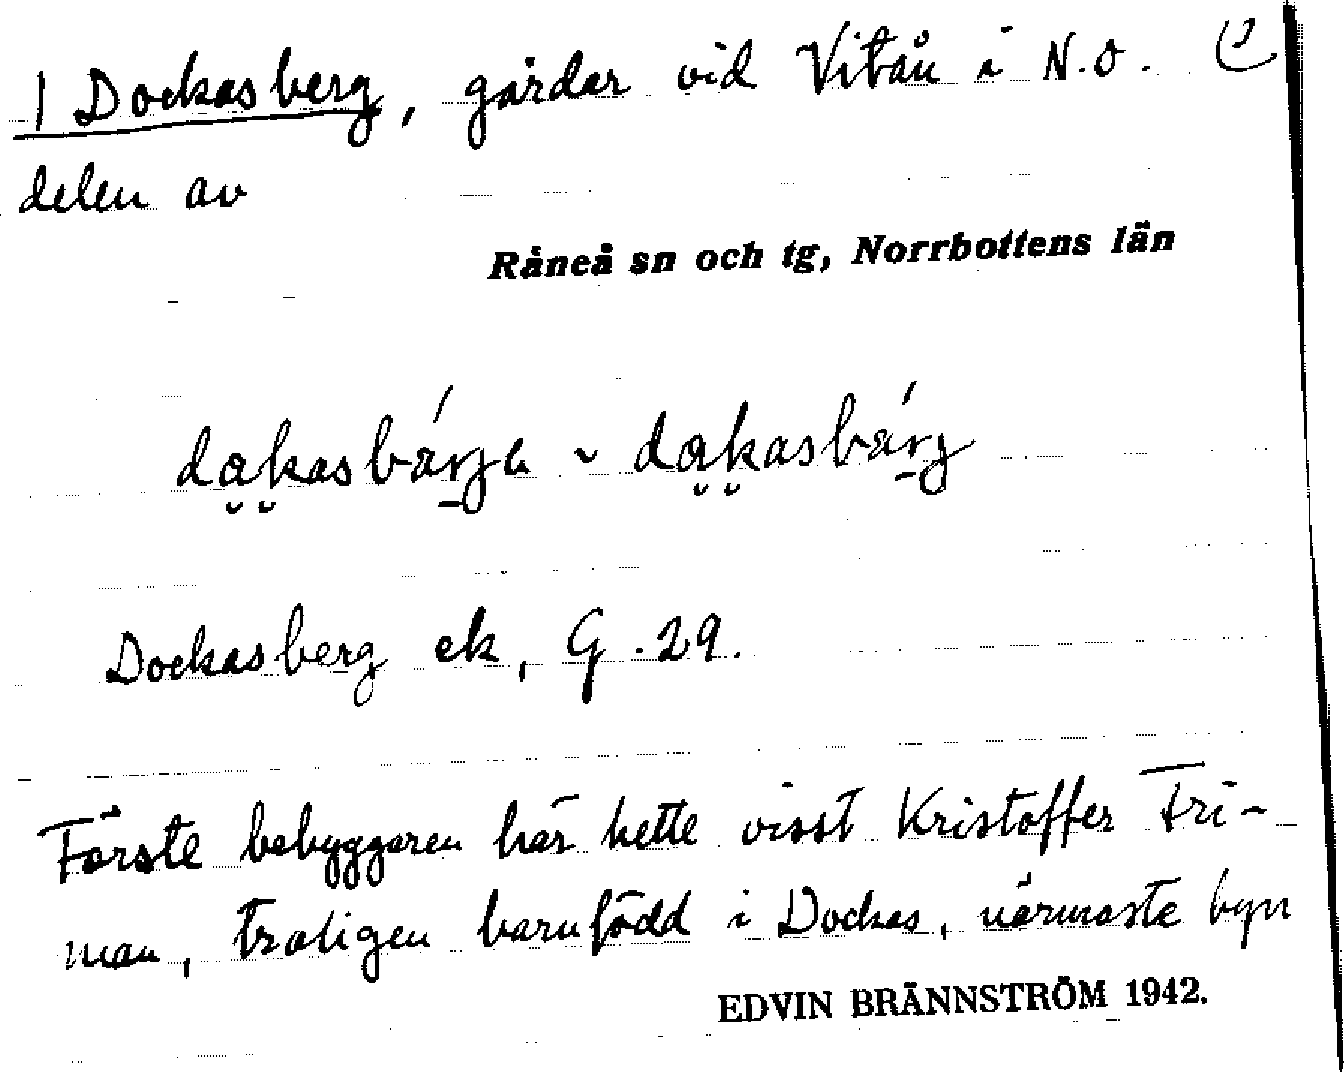 1 Dockasberg, gårdar vid Vitån i N.O.
delen av
Råneå sn och tg, Norrbottens län
dakasbárga ~ dakasbárg
Dockasberg ek, G.29.
Förste bebyggaren här hette visst Kristoffer Fri-
man, troligen barnfödd i Dockas, närmaste byn
EDVIN BRÄNNSTRÖM 1942.